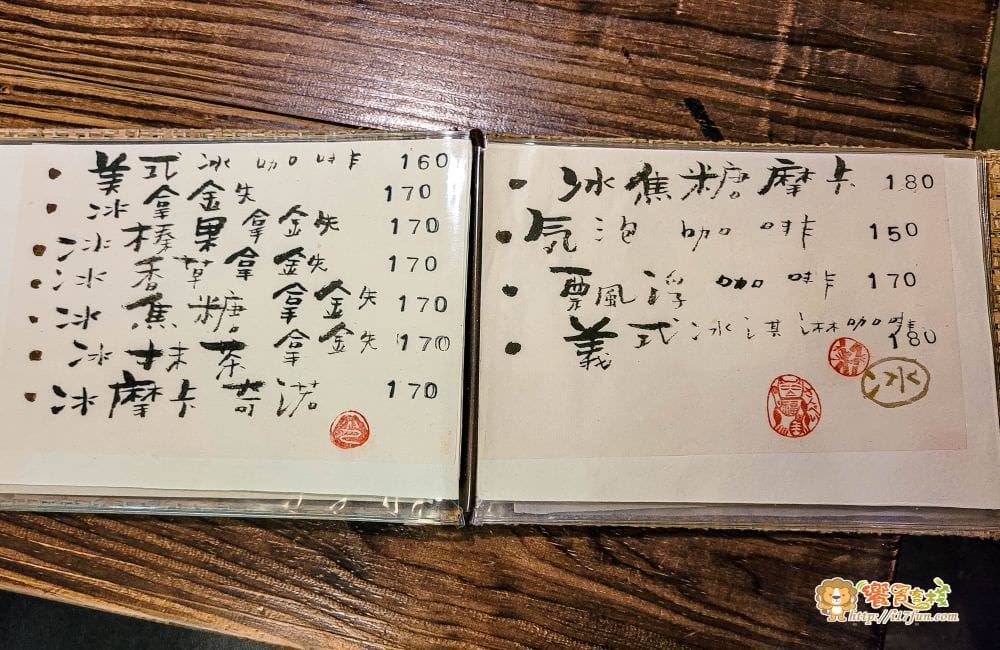 美式冰咖啡 160
冰拿鉄 170
冰榛果拿鉄 170
冰香草拿鉄 170
冰焦糖拿鉄 170
冰抹茶拿鉄 170
冰摩卡奇諾 170
冰焦糖摩卡 180
気泡咖啡 150
飄浮咖啡 170
義式冰淇淋咖啡 180
冰
http://i17fun.com